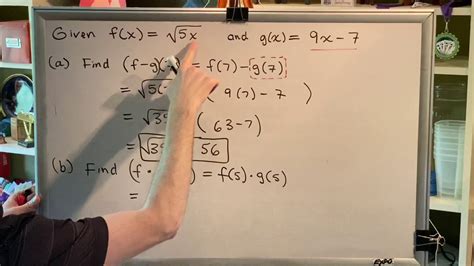 Given f(x) = √5x and g(x) = 9x - 7
(a) Find (f-g)( = f(7) - g(7)
= √5( ( 9(7) - 7 )
= √3 ( 63 - 7 )
= √3 56
(b) Find (f · ) = f(5) · g(5)
=